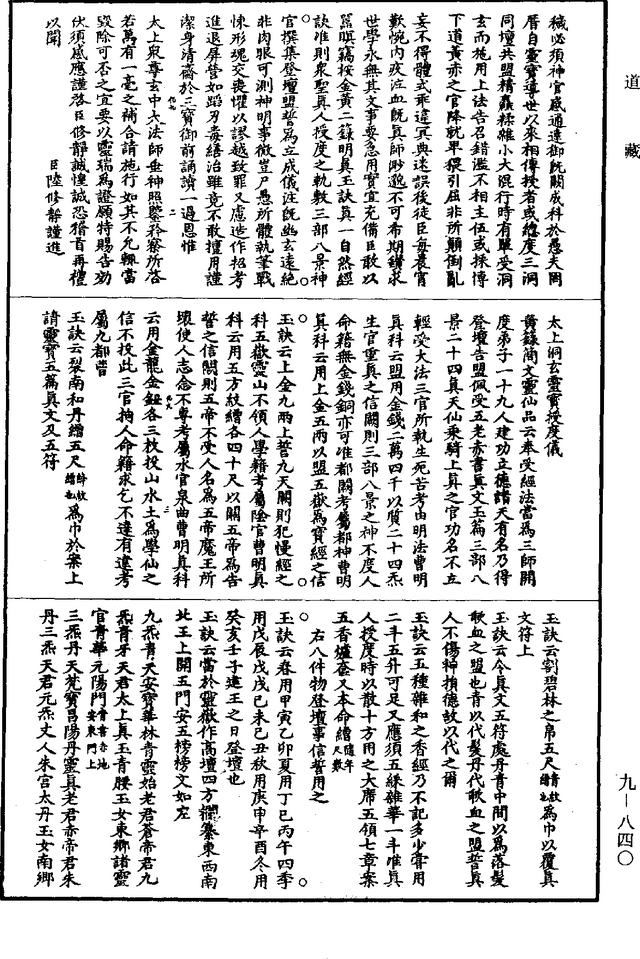 道藏
穢必須神官感通達御既闕成科於愚夫罔
曆自靈寶導世以來相傳授者或總度三洞
同壇共盟精麤糅雜小大混行時有單受洞
玄而施用上法告召錯濫不相主伍或採博
下道黃赤之官降就卑猥引屈非所顛倒亂
妄不得體式乖違冥典迷誤後徒臣每喪宵
歎惋內疚泣血既真師眇邈不可希期鑽求
世學永無其文事要急用實宜充備臣敢以
囂瞑竊按金黃二籙明真玉訣真一自然經
訣准則衆聖真人授度之軌數三部八景神
官撰集登壇盟誓爲立成儀注既幽玄遠絕
非肉眼可測神明事微豈尸愚所體執筆戰
悚形魂交喪懼以謬越致罪又慮造作招考
進退屏營如蹈刃毒繕治雖竟不敢擅用謹
潔身清齋於三寶御前誦讀一過恩惟
太上衆尊玄中大法師垂神照鑒矜察所啓
若萬有一毫之補合請施行如其不允輒當
毀除可否之宜要以靈瑞爲證願特賜告劾
伏須感應謹啓臣修靜誠惶誠恐稽首再禮
以聞　臣陸修靜謹進
太上洞玄靈寶授度儀
黃籙簡文靈仙品云奉受經法當爲三師開
度弟子一十九人建功立德諸天有名乃得
登壇告盟佩受五老赤書真文玉篇三部八
景二十四真天仙乘騎上真之官功名不立
輕受大法三官所執生死苦考由明法曹明
真科云盟用金錢二萬四千以質二十四炁
生官重真之信闕則三部八景之神不度人
命籍無金錢銅亦可准都闕考屬都神曹明
真科云用上金五兩以盟五嶽爲寶經之信
玉訣云上金九兩上誓九天闕則犯慢經之
科五嶽靈山不領人學籍考屬陰官曹明真
科云用五方紋繒各四十尺以關五帝爲告
誓之信闕則五帝不受人名爲五帝魔王所
壞使人志念不專考屬水官泉曲曹明真科
云用金龍金鈕各三枚投山水土爲學仙之
信不投此三官拘人命籍求乞不達有違考
屬九都曹
玉訣云梨南和丹繒五尺爲巾於案上
請靈寶五篇真文及五符
玉訣云割碧林之帛五尺爲巾以覆真
文符上
玉訣云令真文五符處丹青中間以爲落髮
歃血之盟也青以代髮丹代歃血之盟誓真
人不傷神損德故以代之爾
玉訣云五種雜和之香經乃不記多少嘗用
二斗五升可足又應須五綵雜華一斗唯真
人授度時以散十方用之大席五領七章案
五香爐奩又本命繒隨年尺數
右八件物登壇事信誓用之
玉訣云春用甲寅乙卯夏用丁巳丙午四季
用戊辰戊戌己未己丑秋用庚申辛酉冬用
癸亥壬子建王之日登壇也
玉訣云當於靈嶽作高壇四方欄纂東西南
北王上開五門安五榜榜文如左
九炁青天安寶華林青靈始老君蒼帝君九
炁青牙天君太上真玉青腰玉女東鄉諸靈
官青華元陽門青書赤地安東門上
三炁丹天梵寶昌陽丹靈真老君赤帝君朱
丹三炁天君元炁丈人朱宮太丹玉女南鄉
九—八四〇